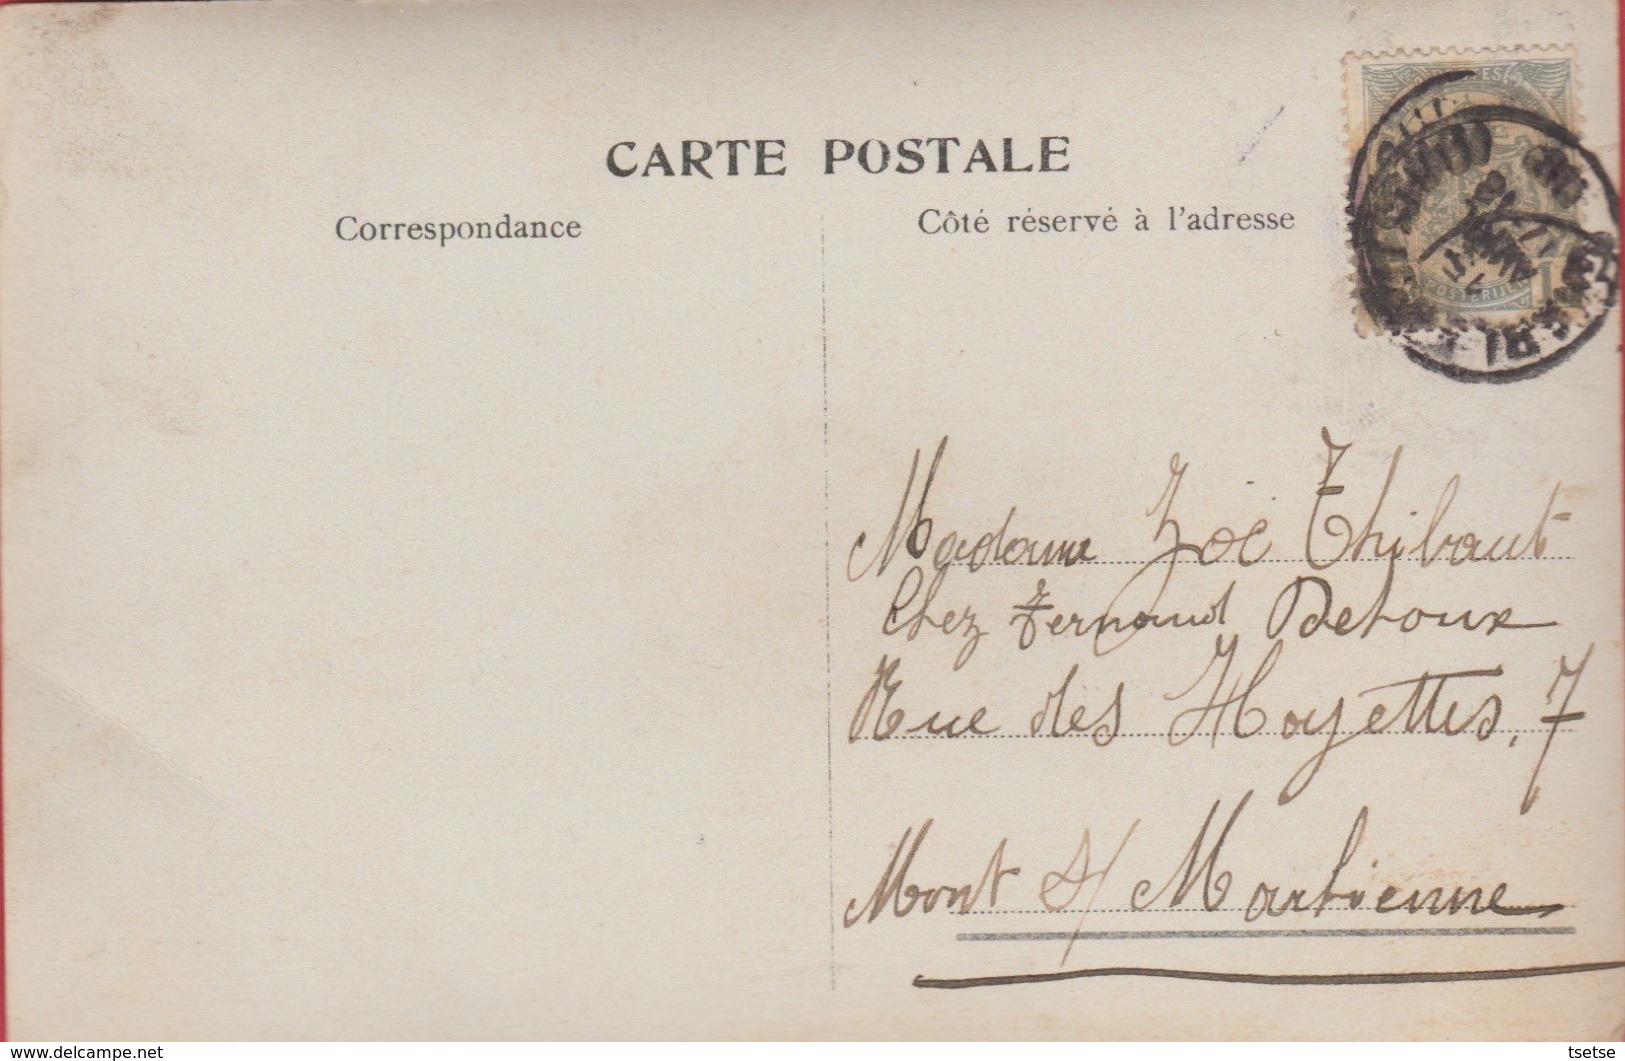 CARTE POSTALE
Correspondance
Côté réservé à l'adresse
POSTERIJEN
1
Madame Zoë Thibaut
Chez Fernand Detoux
Rue des Hayettes, 7
Mont s/ Marchienne
delcampe.net
tsetse